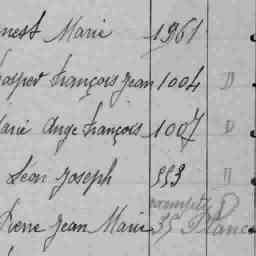 nest Marie 1961
osper François Jean 1004 D
arie Ange François 1007 D
Léon Joseph 553 D
exempté D
Pierre Jean Marie 35 Planc